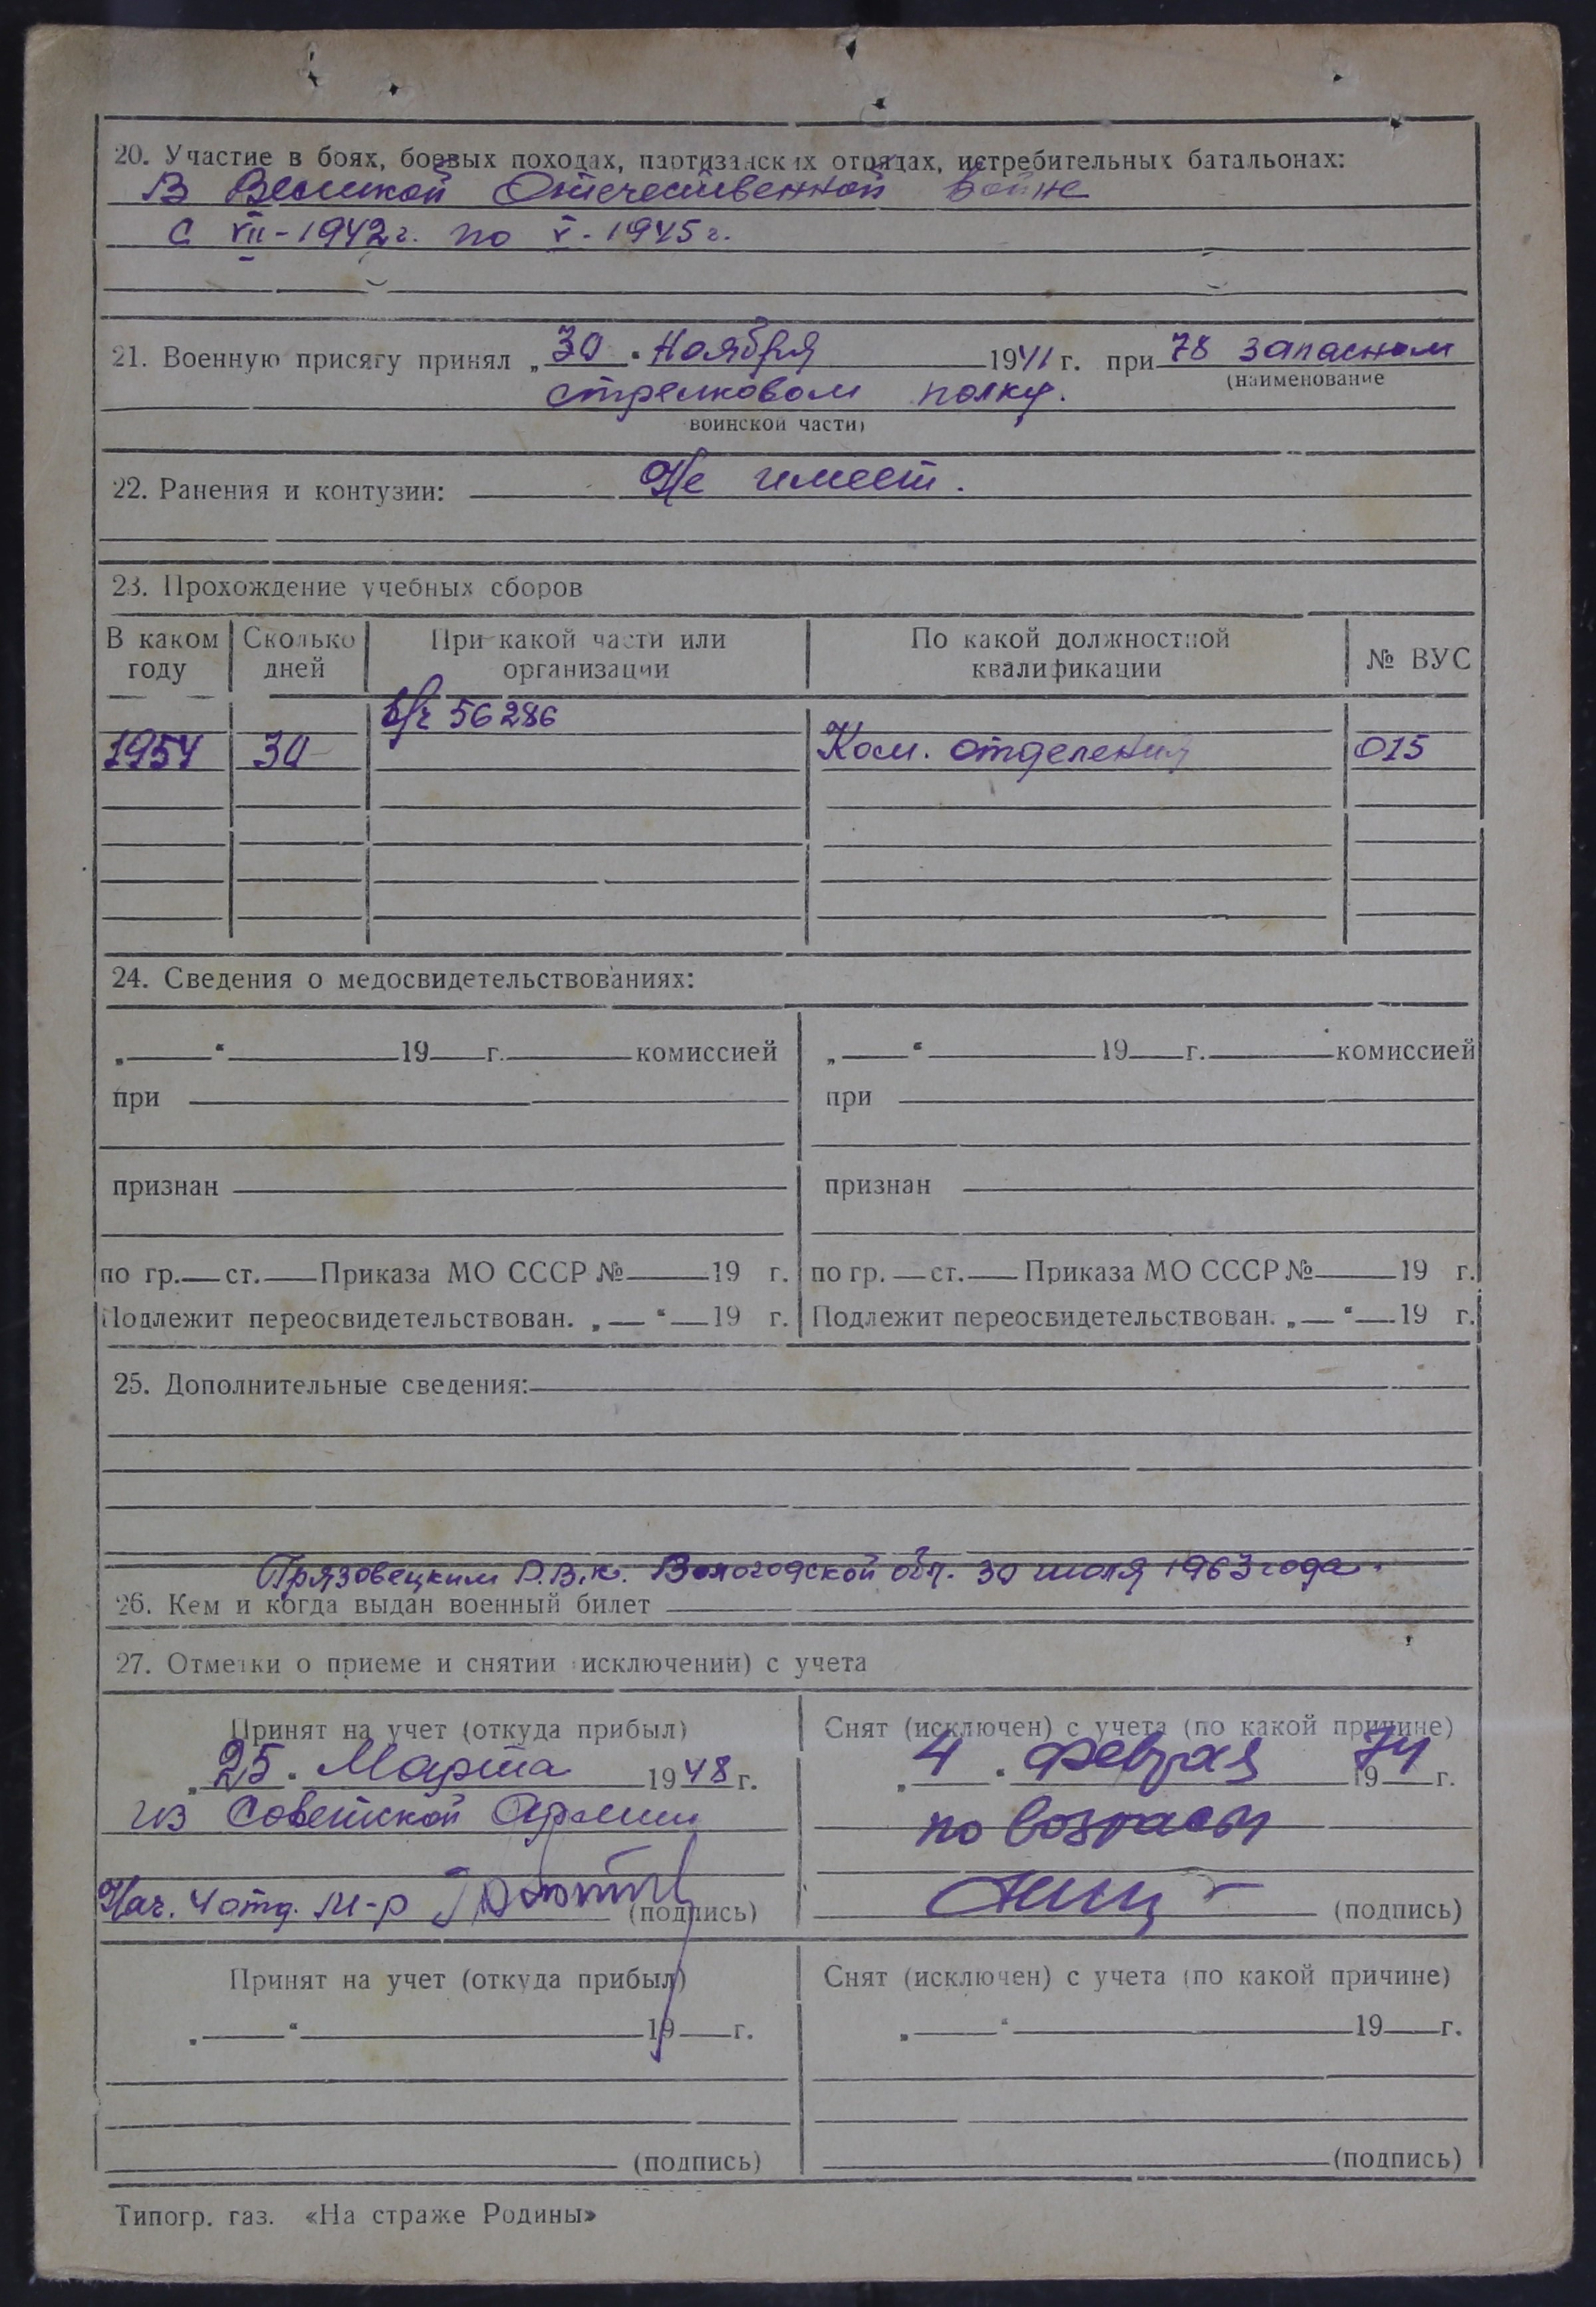 20. Участие в боях, боевых походах, партизанских отрядах, истребительных батальонах:
В Великой Отечественной войне
с VII-1942г. по V-1945г.
21. Военную присягу принял „30" Ноября 1941 г. при 78 запасном
(наименование
стрелковом полку.
воинской части)
22. Ранения и контузии: Не имеет.
23. Прохождение учебных сборов
В каком году Сколько дней При какой части или организации По какой должностной квалификации № ВУС
в/ч 56286
1954 30 Ком. отделения 015
24. Сведения о медосвидетельствованиях:
„ " 19 г. комиссией „ " 19 г. комиссией
при при
признан признан
по гр. ст. Приказа МО СССР № 19 г. по гр. ст. Приказа МО СССР № 19 г.
Подлежит переосвидетельствован. „ " 19 г. Подлежит переосвидетельствован. „ " 19 г.
25. Дополнительные сведения:
Грязовецким Р.В.К. Вологодской обл. 30 июля 1963 года.
26. Кем и когда выдан военный билет
27. Отметки о приеме и снятии (исключении) с учета
Принят на учет (откуда прибыл) Снят (исключен) с учета (по какой причине)
„25" Марта 1948 г. „4" февраля 1974 г.
из Советской Армии по возрасту
Нач. 4 отд. м-р (подпись) (подпись)
Принят на учет (откуда прибыл) Снят (исключен) с учета (по какой причине)
„ " 19 г. „ " 19 г.
(подпись) (подпись)
Типогр. газ. «На страже Родины»